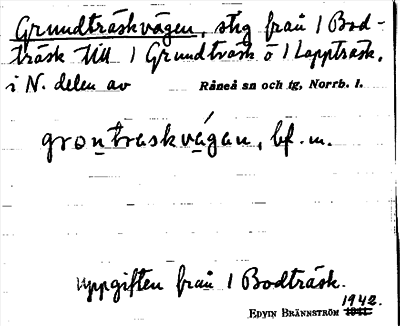 Grundträskvägen, stig från 1 Bod-
träsk till 1 Grundträsk ö 1 Lappträsk,
i N. delen av Råneå sn och tg, Norrb. l.
grontraskvágan, bf. m.
uppgiften från 1 Bodträsk.
1942.
EDVIN BRÄNNSTRÖM 1941